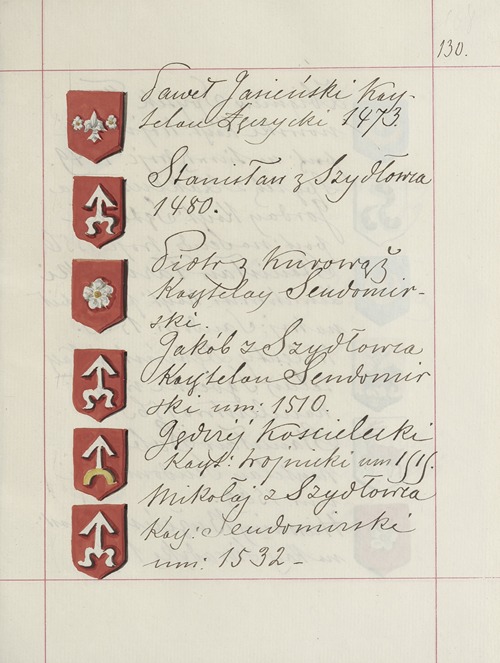 130.
Paweł Jasieński Kay-
telan 1473.
Stanisłan z Szydłowca
1480.
Piotr z Kurowąż
Kasztelay Sendomir-
ski.
Jakób z Szydłowca
Kaytelan Sendomir
ski um: 1510.
Jędrzej Koscielecki
Kaszt: Wojnicki um 1515.
Mikołaj z Szydłowca
Kay: Sendomirski
um: 1532 –